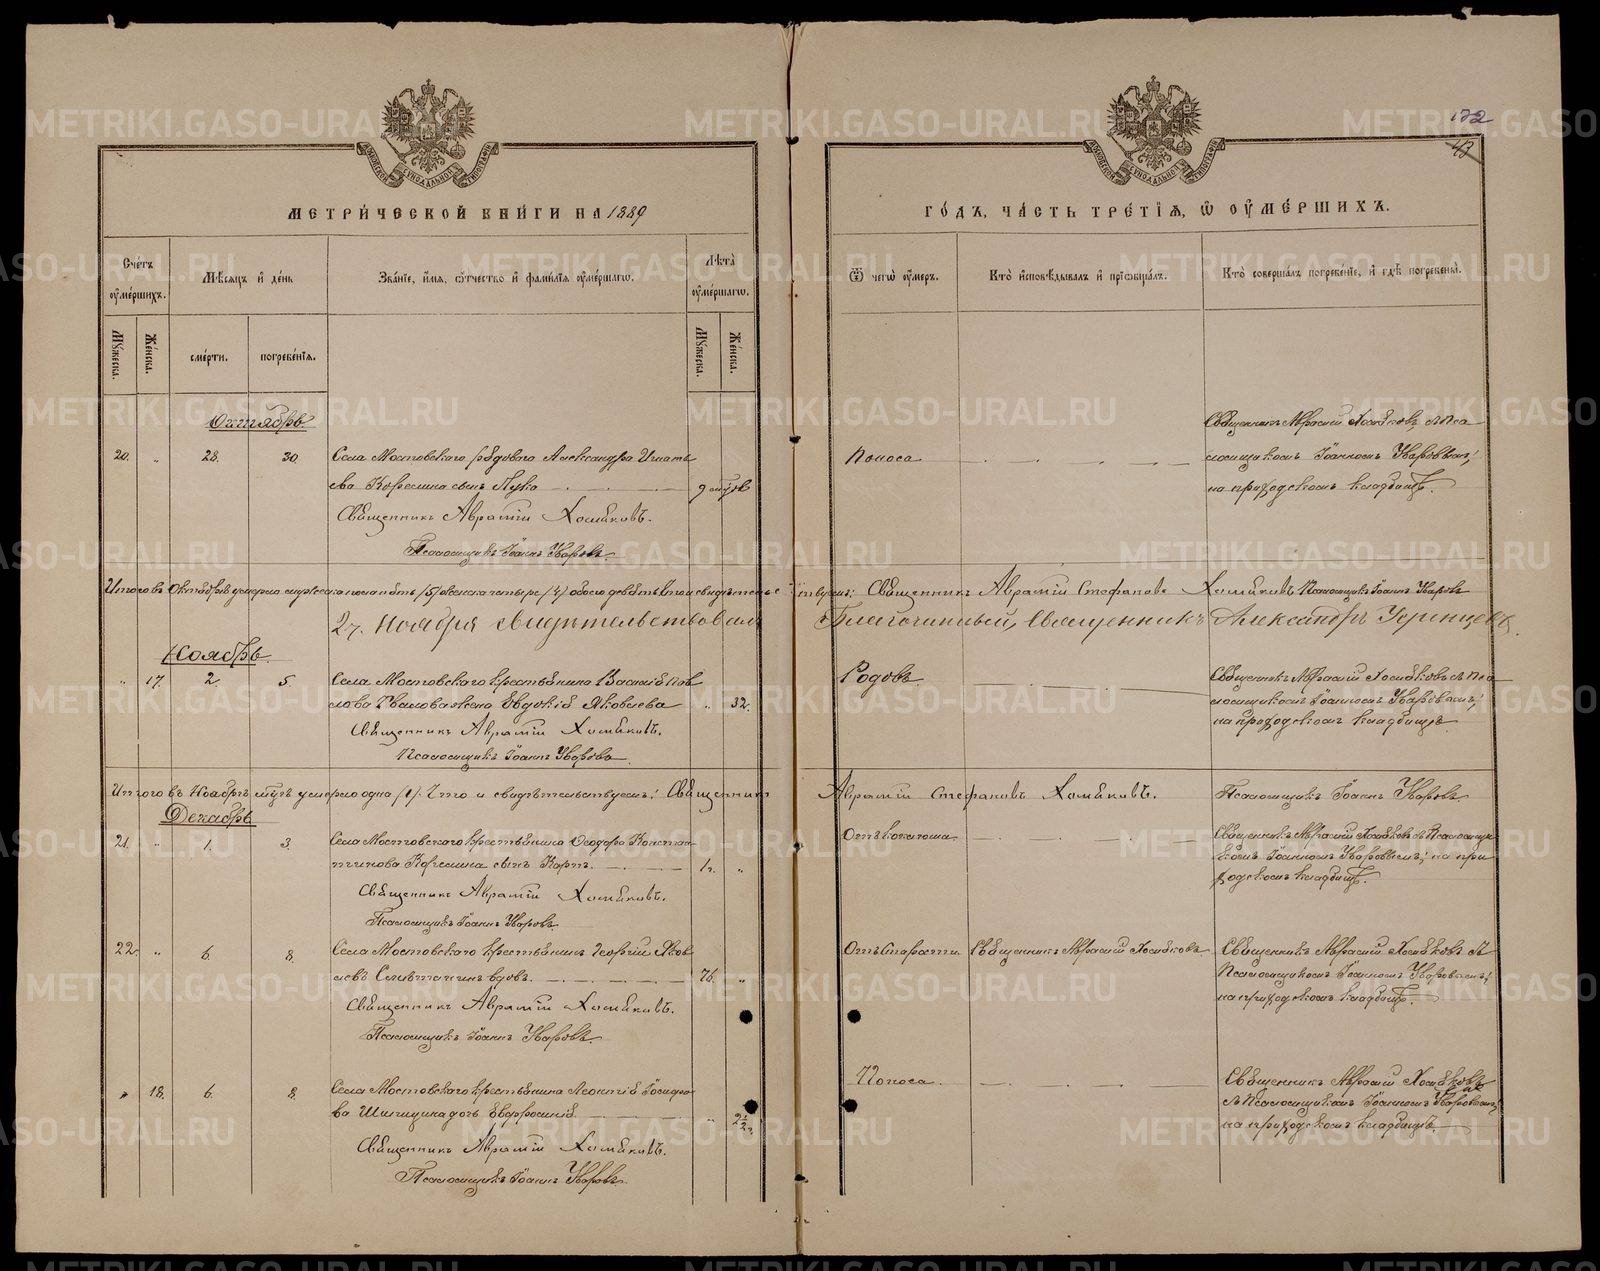 МЕТРИЧЕСКОЙ КНИГИ НА 1889
ГОДЪ, ЧАСТЬ ТРЕТІЯ, Ѡ ОУМЕРШИХЪ.
122
43
Счетъ оумершихъ.
Мѣсяцъ и день
Званіе, имя, отчество и фамилія оумершагѡ.
Лѣта оумершагѡ.
Ѿ чегѡ оумеръ.
Кто исповѣдывалъ и пріѡбщалъ.
Кто совершалъ погребеніе, и гдѣ погребены.
Мужеска.
Женска.
смерти.
погребенія.
Мужеска.
Женска.
Октябрь
20. " 28. 30. Села Мостовскаго рядоваго Александра Игнать
ева сынъ Лука
Священникъ Авраамій Хомяковъ.
Псаломщикъ Іоаннъ Уваровъ.
Поноса
Священникъ Авраамій Хомяковъ, съ Пса
ломщикомъ Іоанномъ Уваровымъ;
на приходскомъ кладбищѣ.
Итого въ Октябрѣ умерло мужеска пола пять (5) женска четыре (4) обоего девять
Священникъ Авраамій Стефановъ Хомяковъ Псаломщикъ Іоаннъ Уваровъ
27. Ноября свидѣтельствовалъ Благочинный, Священникъ Александръ
Ноябрь.
" 17. 2. 5. Села Мостовскаго крестьянина Василія Пав
лова жена Евдокія Яковлева " 32.
Священникъ Авраамій Хомяковъ.
Псаломщикъ Іоаннъ Уваровъ.
Родовъ
Священникъ Авраамій Хомяковъ съ Пса
ломщикомъ Іоанномъ Уваровымъ;
на приходскомъ кладбищѣ
Итого въ Ноябрѣ умерло одна (1). Что и свидѣтельствуемъ: Священникъ
Авраамій Стефановъ Хомяковъ. Псаломщикъ Іоаннъ Уваровъ
Декабрь
21. " 1. 3. Села Мостовскаго крестьянина Ѳеодора Констан
тинова сынъ Карпъ. 1г. "
Священникъ Авраамій Хомяковъ.
Псаломщикъ Іоаннъ Уваровъ.
Отъ коклюша
Священникъ Авраамій Хомяковъ съ Псаломщи
комъ Іоанномъ Уваровымъ; на при
ходскомъ кладбищѣ.
22. " 6. 8. Села Мостовскаго крестьянинъ Георгій Яков
левъ вдовъ. 76. "
Священникъ Авраамій Хомяковъ.
Псаломщикъ Іоаннъ Уваровъ.
Отъ старости Священникъ Авраамій Хомяковъ
Священникъ Авраамій Хомяковъ съ
Псаломщикомъ Іоанномъ Уваровымъ;
на приходскомъ кладбищѣ.
" 18. 6. 8. Села Мостовскаго крестьянина Леонтія
дочь Евфросинія
Священникъ Авраамій Хомяковъ.
Псаломщикъ Іоаннъ Уваровъ.
Поноса.
Священникъ Авраамій Хомяковъ
съ Псаломщикомъ Іоанномъ Уваровымъ;
на приходскомъ кладбищѣ.
METRIKI.GASO-URAL.RU